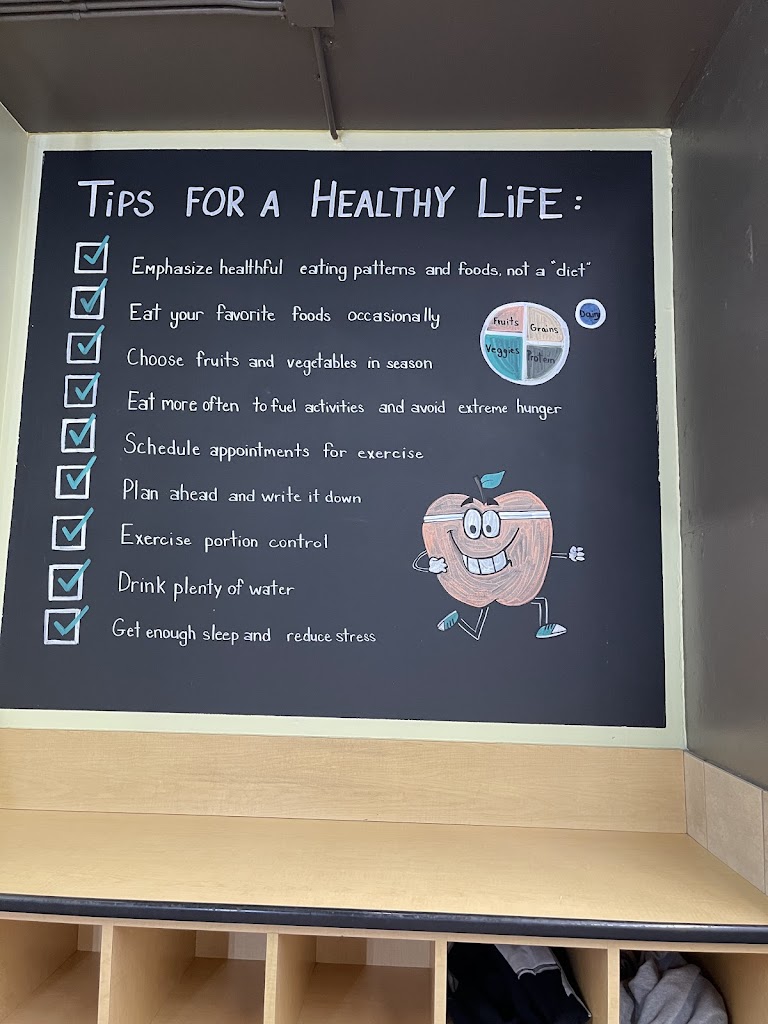 TiPS FOR A HEALTHY LiFE:
Emphasize healthful eating patterns and foods, not a "diet"
Eat your favorite foods occasionally
Choose fruits and vegetables in season
Eat more often to fuel activities and avoid extreme hunger
Schedule appointments for exercise
Plan ahead and write it down
Exercise portion control
Drink plenty of water
Get enough sleep and reduce stress
Fruits
Grains
Dairy
Veggies
Protein